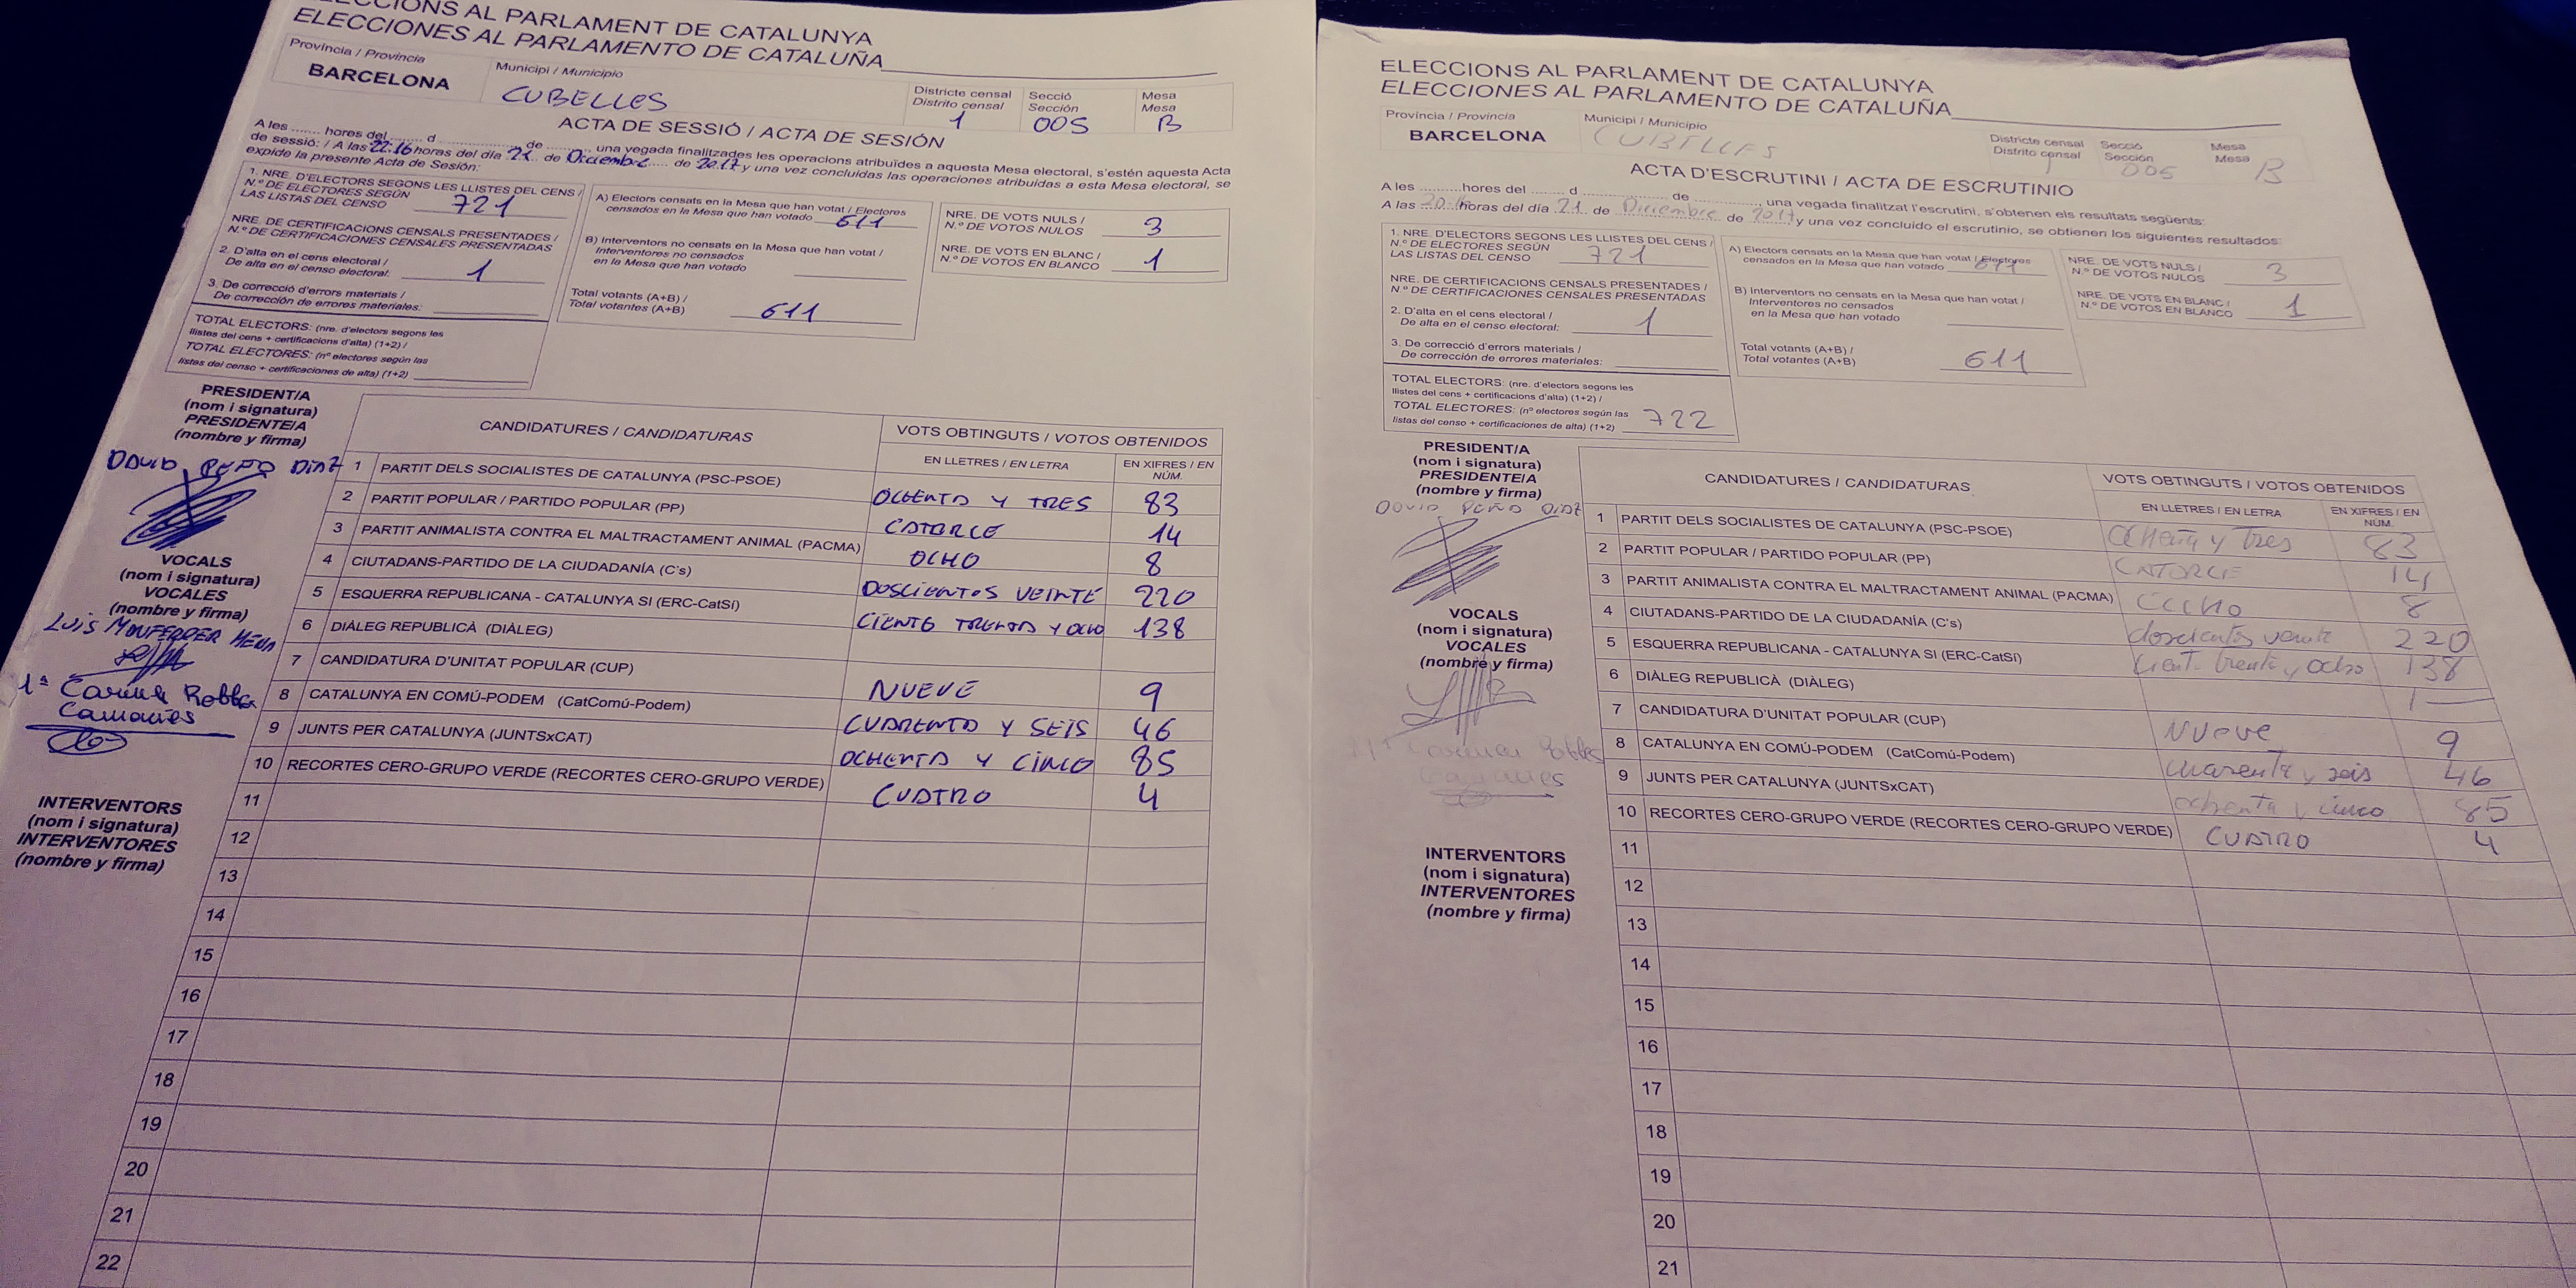 ELECCIONS AL PARLAMENT DE CATALUNYA
ELECCIONES AL PARLAMENTO DE CATALUÑA
Província / Provincia
BARCELONA
Municipi / Municipio
CUBELLES
Districte censal
Distrito censal
1
Secció
Sección
005
Mesa
Mesa
B
ACTA DE SESSIÓ / ACTA DE SESIÓN
A les ....... hores del ........ d .................... de ........, una vegada finalitzades les operacions atribuïdes a aquesta Mesa electoral, s'estén aquesta Acta
de sessió: / A las 22:16 horas del día 21 de Diciembre de 2017 y una vez concluidas las operaciones atribuidas a esta Mesa electoral, se
expide la presente Acta de Sesión:
1. NRE. D'ELECTORS SEGONS LES LLISTES DEL CENS /
N.º DE ELECTORES SEGÚN
LAS LISTAS DEL CENSO 721
NRE. DE CERTIFICACIONS CENSALS PRESENTADES /
N.º DE CERTIFICACIONES CENSALES PRESENTADAS
2. D'alta en el cens electoral /
De alta en el censo electoral: 1
3. De correcció d'errors materials /
De corrección de errores materiales:
TOTAL ELECTORS: (nre. d'electors segons les
llistes del cens + certificacions d'alta) (1+2) /
TOTAL ELECTORES: (nº electores según las
listas del censo + certificaciones de alta) (1+2)
A) Electors censats en la Mesa que han votat / Electores
censados en la Mesa que han votado 611
B) Interventors no censats en la Mesa que han votat /
Interventores no censados
en la Mesa que han votado
Total votants (A+B) /
Total votantes (A+B) 611
NRE. DE VOTS NULS /
N.º DE VOTOS NULOS 3
NRE. DE VOTS EN BLANC /
N.º DE VOTOS EN BLANCO 1
PRESIDENT/A
(nom i signatura)
PRESIDENTE/A
(nombre y firma)
DAVID PEÑO DIAZ
VOCALS
(nom i signatura)
VOCALES
(nombre y firma)
LUIS MONFERRER MENA
1ª Carina Robles
Camoñes
INTERVENTORS
(nom i signatura)
INTERVENTORES
(nombre y firma)
CANDIDATURES / CANDIDATURAS
VOTS OBTINGUTS / VOTOS OBTENIDOS
EN LLETRES / EN LETRA
EN XIFRES / EN
NÚM.
1 PARTIT DELS SOCIALISTES DE CATALUNYA (PSC-PSOE) OCHENTA Y TRES 83
2 PARTIT POPULAR / PARTIDO POPULAR (PP) CATORCE 14
3 PARTIT ANIMALISTA CONTRA EL MALTRACTAMENT ANIMAL (PACMA) OCHO 8
4 CIUTADANS-PARTIDO DE LA CIUDADANÍA (C's) DOSCIENTOS VEINTE 220
5 ESQUERRA REPUBLICANA - CATALUNYA SI (ERC-CatSí) CIENTO TREINTA Y OCHO 138
6 DIÀLEG REPUBLICÀ (DIÀLEG)
7 CANDIDATURA D'UNITAT POPULAR (CUP) NUEVE 9
8 CATALUNYA EN COMÚ-PODEM (CatComú-Podem) CUARENTA Y SEIS 46
9 JUNTS PER CATALUNYA (JUNTSxCAT) OCHENTA Y CINCO 85
10 RECORTES CERO-GRUPO VERDE (RECORTES CERO-GRUPO VERDE) CUATRO 4
11
12
13
14
15
16
17
18
19
20
21
22
ELECCIONS AL PARLAMENT DE CATALUNYA
ELECCIONES AL PARLAMENTO DE CATALUÑA
Província / Provincia
BARCELONA
Municipi / Municipio
CUBELLES
Districte censal
Distrito censal
1
Secció
Sección
005
Mesa
Mesa
B
ACTA D'ESCRUTINI / ACTA DE ESCRUTINIO
A les .......... hores del ........ d .................... de ............, una vegada finalitzat l'escrutini, s'obtenen els resultats següents:
A las horas del día 21 de Diciembre de 2017 y una vez concluido el escrutinio, se obtienen los siguientes resultados:
1. NRE. D'ELECTORS SEGONS LES LLISTES DEL CENS /
N.º DE ELECTORES SEGÚN
LAS LISTAS DEL CENSO 721
NRE. DE CERTIFICACIONS CENSALS PRESENTADES /
N.º DE CERTIFICACIONES CENSALES PRESENTADAS
2. D'alta en el cens electoral /
De alta en el censo electoral: 1
3. De correcció d'errors materials /
De corrección de errores materiales:
TOTAL ELECTORS: (nre. d'electors segons les
llistes del cens + certificacions d'alta) (1+2) /
TOTAL ELECTORES: (nº electores según las
listas del censo + certificaciones de alta) (1+2) 722
A) Electors censats en la Mesa que han votat / Electores
censados en la Mesa que han votado 611
B) Interventors no censats en la Mesa que han votat /
Interventores no censados
en la Mesa que han votado
Total votants (A+B) /
Total votantes (A+B) 611
NRE. DE VOTS NULS /
N.º DE VOTOS NULOS 3
NRE. DE VOTS EN BLANC /
N.º DE VOTOS EN BLANCO 1
PRESIDENT/A
(nom i signatura)
PRESIDENTE/A
(nombre y firma)
DAVID PEÑO DIAZ
VOCALS
(nom i signatura)
VOCALES
(nombre y firma)
INTERVENTORS
(nom i signatura)
INTERVENTORES
(nombre y firma)
CANDIDATURES / CANDIDATURAS
VOTS OBTINGUTS / VOTOS OBTENIDOS
EN LLETRES / EN LETRA
EN XIFRES / EN
NÚM.
1 PARTIT DELS SOCIALISTES DE CATALUNYA (PSC-PSOE) ochenta y tres 83
2 PARTIT POPULAR / PARTIDO POPULAR (PP) CATORCE 14
3 PARTIT ANIMALISTA CONTRA EL MALTRACTAMENT ANIMAL (PACMA) 8
4 CIUTADANS-PARTIDO DE LA CIUDADANÍA (C's) doscientos veinte 220
5 ESQUERRA REPUBLICANA - CATALUNYA SI (ERC-CatSí) ciento treinta y ocho 138
6 DIÀLEG REPUBLICÀ (DIÀLEG)
7 CANDIDATURA D'UNITAT POPULAR (CUP) NUEVE 9
8 CATALUNYA EN COMÚ-PODEM (CatComú-Podem) cuarenta y seis 46
9 JUNTS PER CATALUNYA (JUNTSxCAT) ochenta y cinco 85
10 RECORTES CERO-GRUPO VERDE (RECORTES CERO-GRUPO VERDE) CUATRO 4
11
12
13
14
15
16
17
18
19
20
21